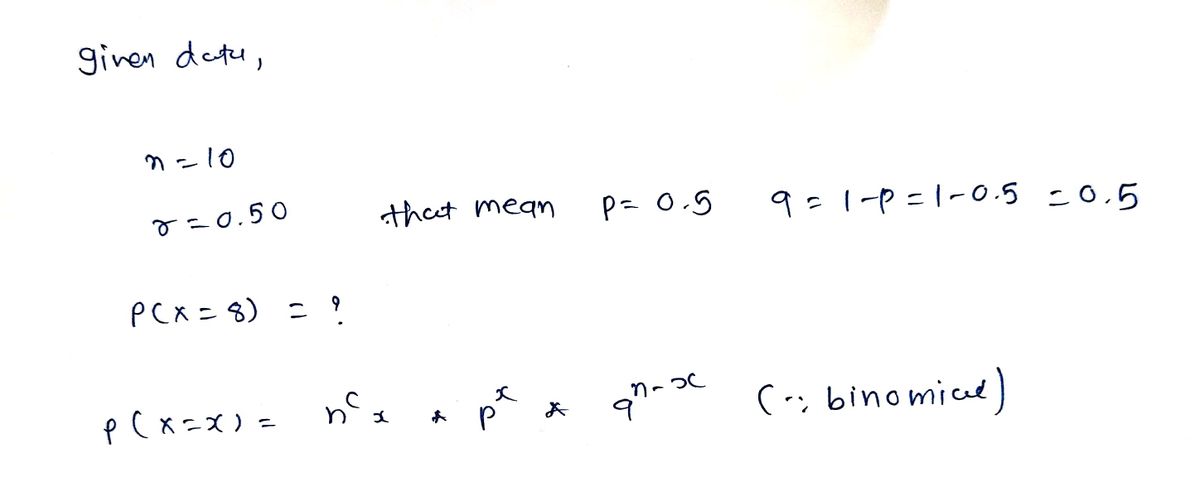 given data,
n = 10
r = 0.50 that mean p = 0.5 q = 1-p = 1-0.5 = 0.5
P(X = 8) = ?
P(X=x) = nCx * p^x * q^n-x (∵ binomial)